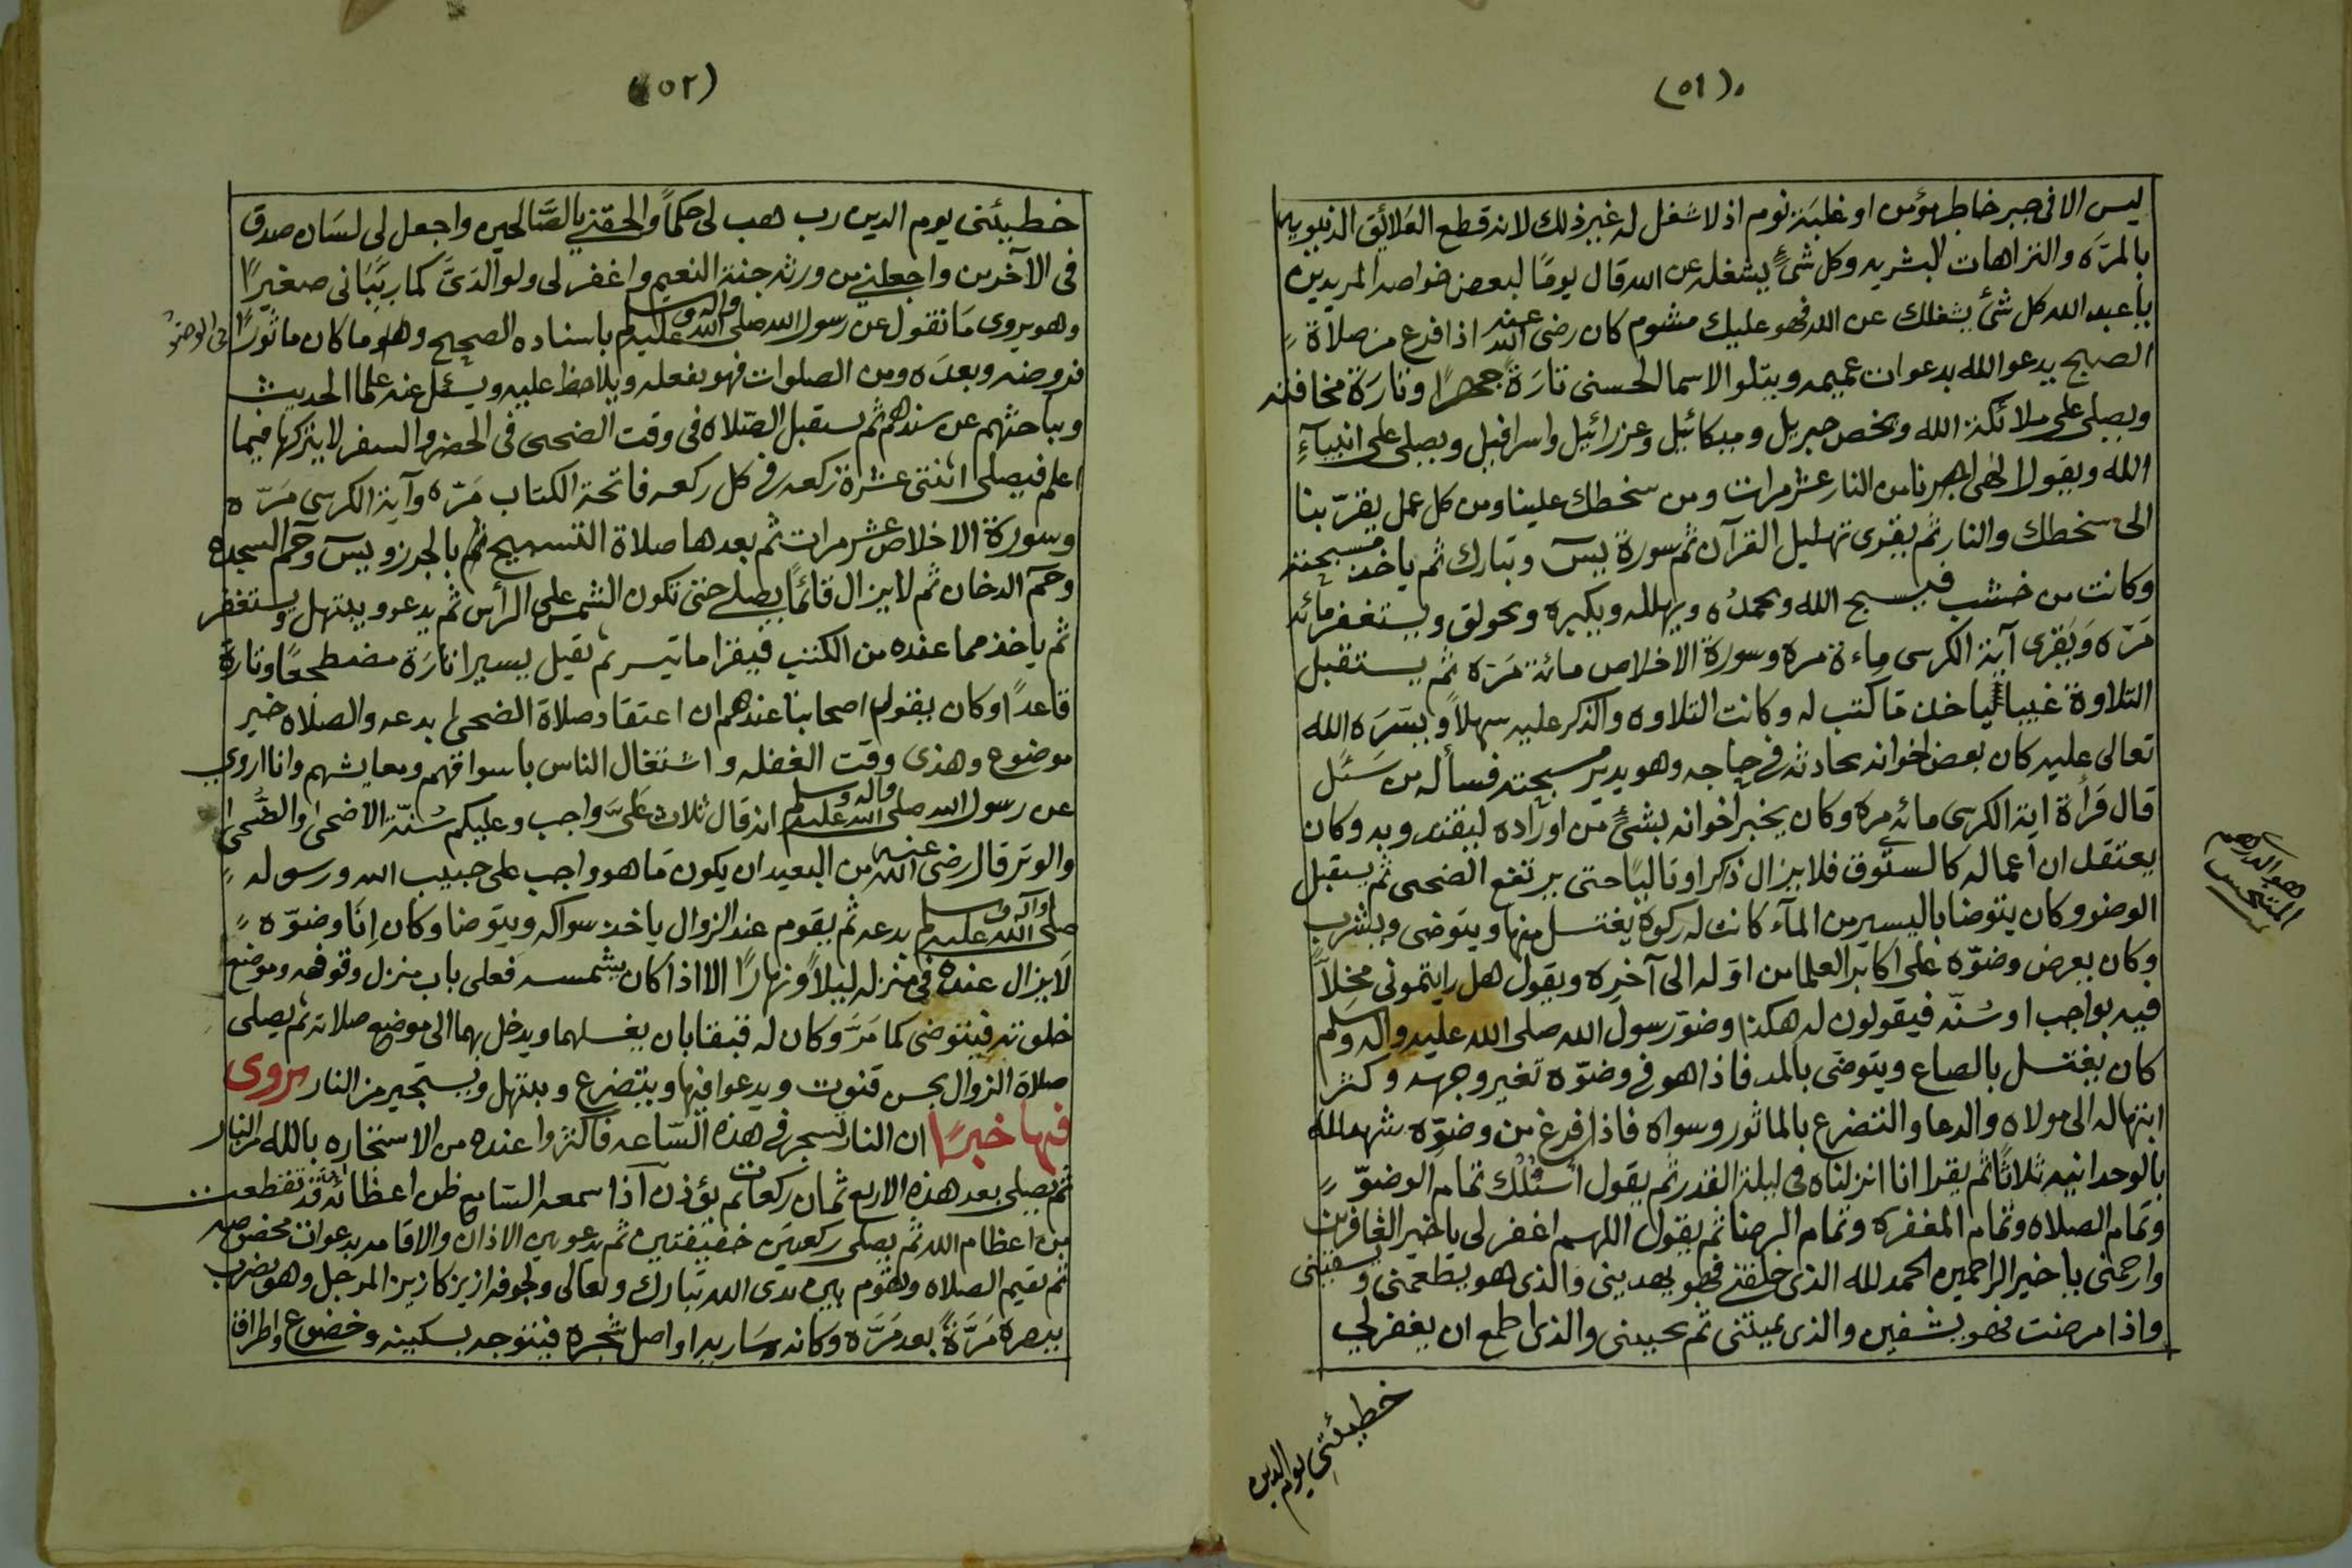 (٥١)
ليس الا فى جبر خاطر مؤمن او غلبة نوم اذ لا شغل له غير ذلك لانه قطع العلائق الدنيويه
بالمرّه والنزاهات البشريه وكل شئٍ يشغله عن الله قال يومًا لبعض خواصه المريدين
يا عبد الله كل شئ يشغلك عن الله فهو عليك مشوم كان رضى الله عنه اذا فرغ من صلاة
الصبح يدعو الله بدعوات عميمه ويتلو الاسما الحسنى تارَةً جهرًا وتارَة مخافته
ويصلى على ملائكة الله ويخص جبريل وميكائيل وعزرائيل واسرافيل ويصلى على انبياءِ
الله ويقول الهى اجرنا من النار عشر مرات ومن سخطك علينا ومن كل عمل يقرّبنا
الى سخطك والنار ثم يقرى تهليل القرآن ثم سورة يسٓ وتبارك ثم ياخذ مسبحته
وكانت من خشب فيسبح الله ويحمدُه ويهلله ويكبره ويحولق ويستغفر مائه
مَرّه وَيَقرى آية الكرسى ماءة مره وسورة الاخلاص مائة مَرّه ثم يستقبل
التلاوة غيبا لياخذ مَا كتب له وكانت التلاوه والذكر عليه سهلاً ويَسّرَه الله
تعالى عليه كان بعض اخوانه يحادثه فى حاجه وهو يدير مسبحته فسأله من سَئل
قال قَرأة اية الكرسى مائه مره وكان يخبر اخوانه بشئٍ من اوراده ليقتدو به وكان
يعتقل ان اعماله كالستّوق فلا يزال ذكرا وتاليًا حتى يرتفع الضحى ثم يستقبل
الوضو وكان يتوضا باليسير من المآء كانت له ركوة يغتسل منها ويتوضى ويشرب
وكان يعرض وضوّه على اكابر العلما من اوّله الى آخره ويقول هل رايتمونى مخلاً
فيه بواجب او سُنّه فيقولون له هكذا وضوّ رسول الله صلى الله عليه واله وسلم
كان يغتسل بالصاع ويتوضى بالمد فاذا هو فى وضوّه تغير وجهه وكثر
ابتهاله الى مولاه والدعا والتضرع بالماثور وسواه فاذا فرغ من وضوّه شهد لله
بالوحدانيه ثلاثًا ثم يقرا انا انزلناه فى ليلة القدر ثم يقول أسئلك تمام الوضوّ
وتمام الصلاه وتمام المغفره وتمام الرضا ثم يقول اللهم اغفر لى يا خير الغافرين
وارحمنى يا خير الراحمين الحمد لله الذى خلقنى فهو يهدينى والذى هو يطعمنى ويسقينى
واذا مرضت فهو يشفين والذى يميتنى ثم يحيينى والذى اطمع ان يغفر لى
خطيئتى يوم الدين
هو الدرهم
المتجس
(٥٢)
خطيئتى يوم الدين رب هب لى حكماً والحقنى بالصَّالحين واجعل لى لسَان صدق
فى الآخرين واجعلنى من ورثه جنة النعيم واغفر لى ولوالدَىَّ كما ربّيَانى صغيرًا
وهو يروى مَا نقول عن رسول الله صلى الله عليه واله وسلم باسناده الصحيح وهو ما كان ماثورًا فى الوضوّ
فروضه وبعدَه ومن الصلوات فهو يفعله ويلاحظ عليه ويسئل عنه علما الحديث
ويباحثهم عن سندهم ثم يستقبل الصّلاه فى وقت الضحى فى الحضر والسفر لا يتركها فيما
اعلم فيصلى اثنتى عشرة ركعه فى كل ركعه فاتحة الكتاب مَرّه وآية الكرسى مَرّه
وسورة الاخلاص عشر مرات ثم بعدها صلاة التسبيح ثم بالجرز ويسٓ وحمٓ السجده
وحمٓ الدخان ثم لا يزال قائمًا يصلى حتى تكون الشمس على الرأس ثم يدعو ويبتهل ويستغفر
ثم ياخذ مما عنده من الكتب فيقرا ما تيسر ثم يقيل يسيرا تارَة مضطجعًا وتارة
قاعداً وكان يقول اصحابنا عندهم ان اعتقاد صلاة الضحى بدعه والصلاه خير
موضوع وهذى وقت الغفله واشتغال الناس باسواقهم ومعايشهم وانا اروى
عن رسول الله صلى الله عليه واله وسلم انه قال ثلاث عَلَىَّ واجب وعليكم سُنّة الاضحى والضُّحى
والوتر قال رضى الله عنه من البعيد ان يكون مَا هو واجب على حبيب الله ورسوله
صلى الله عليه واله وسلم بدعه ثم يقوم عند الزوال ياخذ سواكه ويتوضا وكان إنَا وضوّه
لَايزال عنده فى منزله ليلاً ونهارًا الا اذا كان بشمسه فعلى باب منزل وقوفه وموضع
خلوته فيتوضى كما مَرَّ وكان له قبقابان يغسلهما ويدخل بهما الى موضع صلاته ثم يصلى
صلاة الزوال بحسن قنوت ويدعو فيها ويتضرع ويبتهل ويستجير من النار يروى
فيها خبرًا ان النار تسجر فى هذه السّاعه فاكثروا عنده من الاستخاره بالله من النار
ثم يصلى بعد هذه الاربع ثمان ركعات ثم يؤذن اذا سمعه السّامع ظن اعظائه قد تقطعت
من اعظام الله ثم يصلى ركعتين خفيفتين ثم يدعو بين الاذان والاقامه بدعوات مخصوصه
ثم يقيم الصلاه ويقوم بين يدى الله تبارك وتعالى ولجوفه ازيز كازيز المرجل وهو يضرب
ببصره مَرَّةً بعد مَرَّه وكانه سَاريه او اصل شجره فيتوجه بسكينه وخضوع واطراق